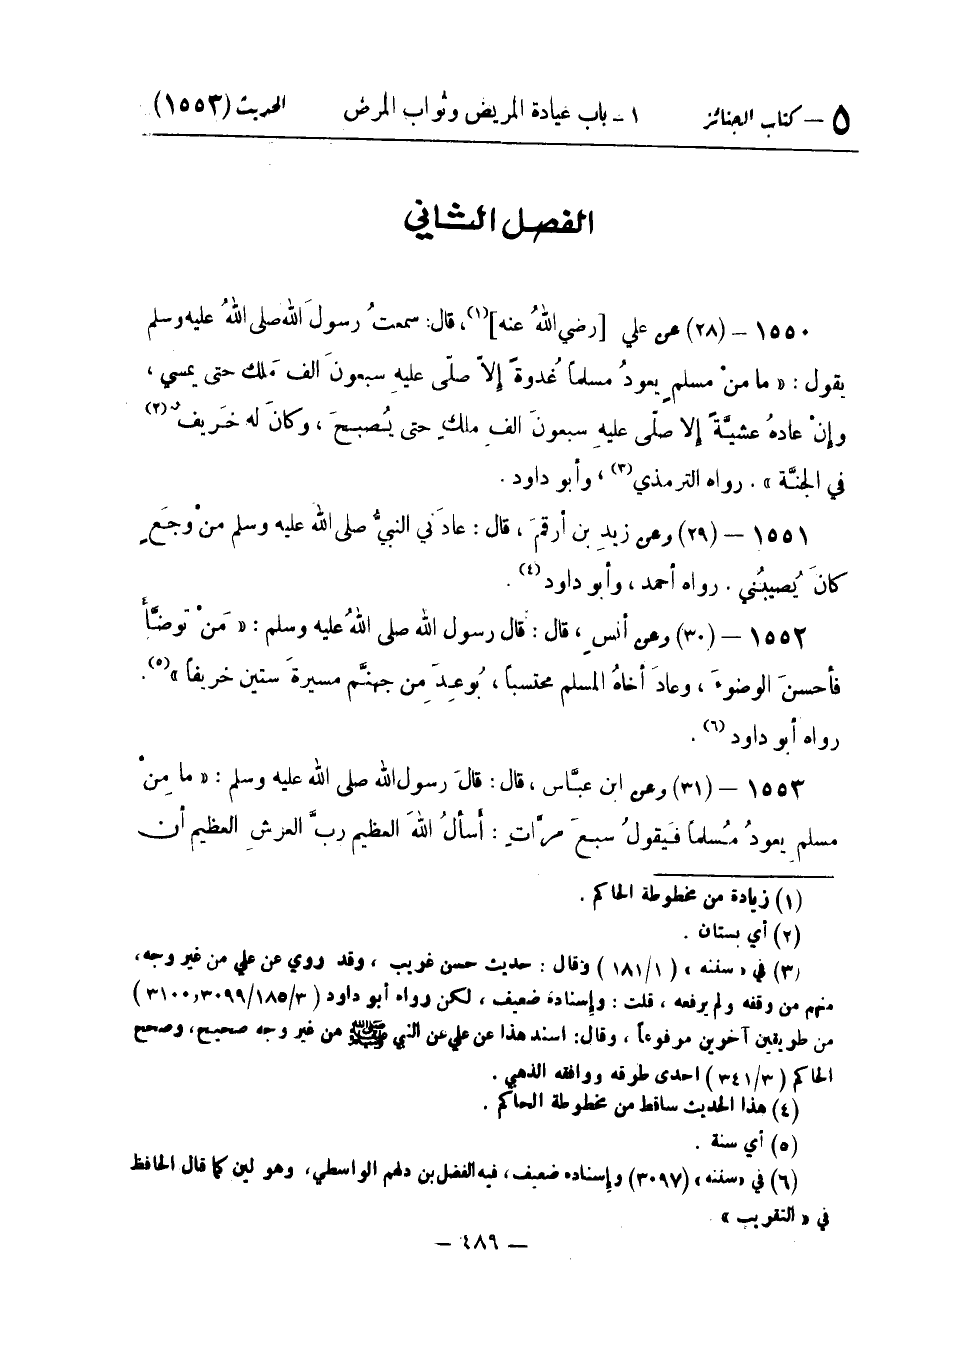 ٥ – كتاب الجنائز ١ - باب عيادة المريض وثواب المرض الحديث (١٥٥٣)
الفصل الثاني
١٥٥٠ – (٢٨) عن علي [رضي اللهُ عنه](١)، قال: سمعتُ رسولَ اللهِ صلى اللهُ عليه وسلم
يقول : « ما منْ مسلمٍ يعودُ مسلماً غُدوةً إلاّ صلّى عليهِ سبعونَ ألفَ مَلك حتى يمسي ،
وإنْ عادهُ عشيَّةً إلا صلّى عليهِ سبعونَ ألفَ ملكٍ حتى يُصبحَ ، وكانَ له خَريفٌ(٢)
في الجنَّة » . رواه الترمذي(٣) ، وأبو داود .
١٥٥١ – (٢٩) وعن زيدِ بن أرقمَ ، قال : عادَني النبيُّ صلى اللهُ عليه وسلم منْ وجَعٍ
كانَ يُصيبُني . رواه أحمد ، وأبو داود(٤) .
١٥٥٢ – (٣٠) وعن أنسٍ ، قال : قال رسول الله صلى اللهُ عليه وسلم : « مَنْ توضَّأَ
فأحسنَ الوضوءَ ، وعادَ أخاهُ المسلم محتسباً ، بُوعِدَ مِن جهنَّم مسيرةَ ستين خريفاً »(٥).
رواه أبو داود(٦) .
١٥٥٣ – (٣١) وعن ابن عبَّاس ، قال : قالَ رسول الله صلى الله عليه وسلم : « ما مِنْ
مسلمٍ يعودُ مُسلماً فَيقولُ سبعَ مرَّاتٍ : أسألُ اللهَ العظيم ربَّ العرشِ العظيم أن
(١) زيادة من مخطوطة الحاكم .
(٢) أي بستان .
(٣) في «سننه » ( ١٨١/١ ) وقال : حديث حسن غريب ، وقد روي عن علي من غير وجه،
منهم من وقفه ولم يرفعه ، قلت : وإسناده ضعيف ، لكن رواه أبو داود ( ٣١٠٠,٣٠٩٩/١٨٥/٣ )
من طريقين آخرين مرفوعاً ، وقال: اسند هذا عن علي عن النبي ﷺ من غير وجه صحيح، وصحح
الحاكم ( ٣٤١/٣ ) احدى طرقه ووافقه الذهبي .
(٤) هذا الحديث ساقط من مخطوطة الحاكم .
(٥) أي سنة .
(٦) في «سننه» (٣٠٩٧) وإسناده ضعيف، فيه الفضل بن دلهم الواسطي، وهو لين كما قال الحافظ
في « التقريب » .
– ٤٨٩ –